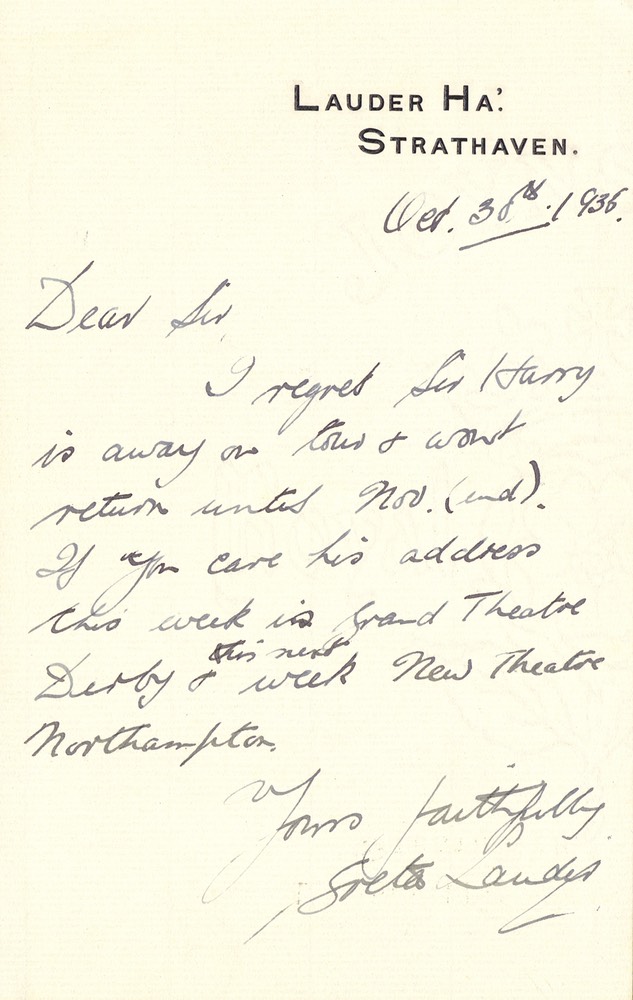 LAUDER HA'.
STRATHAVEN.
Oct. 30th. 1936.
Dear Sir,
I regret Sir Harry
is away on tour & wont
return until Nov. (end).
If you care his address
this week is Grand Theatre
Derby & this next week New Theatre
Northampton.
Yours faithfully
Greta Lauder